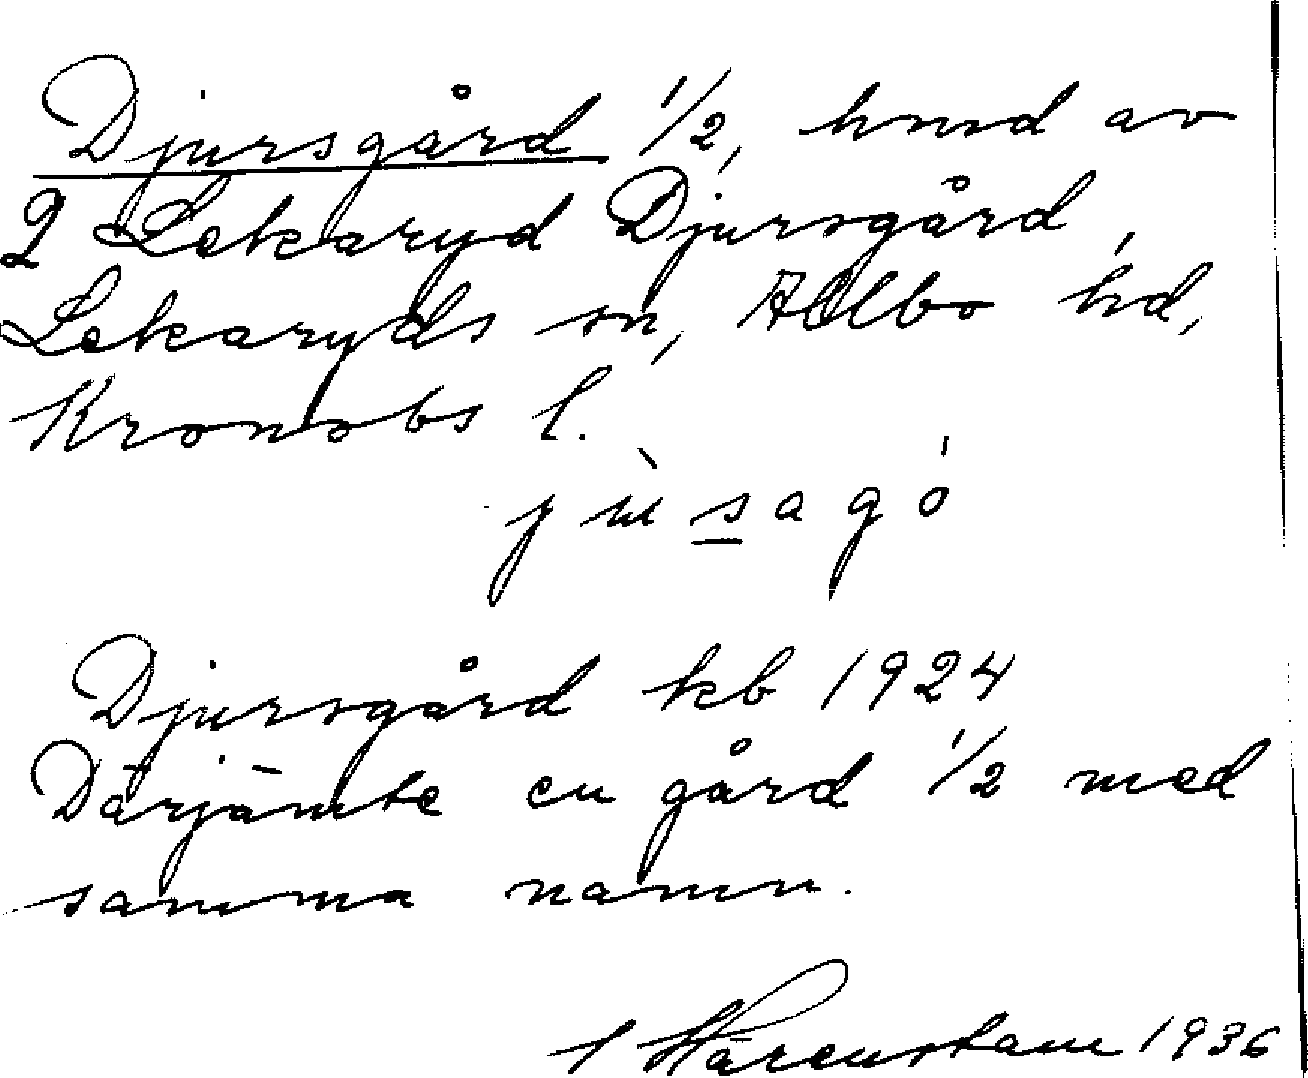 Djursgård 1/2, hmd av
2 Lekaryd Djursgård,
Lekaryds sn, Allbo hd,
Kronobs l.
j ù s a g ó
Djursgård kb 1924
Därjämte en gård 1/2 med
samma namn.
S Härenstam 1936